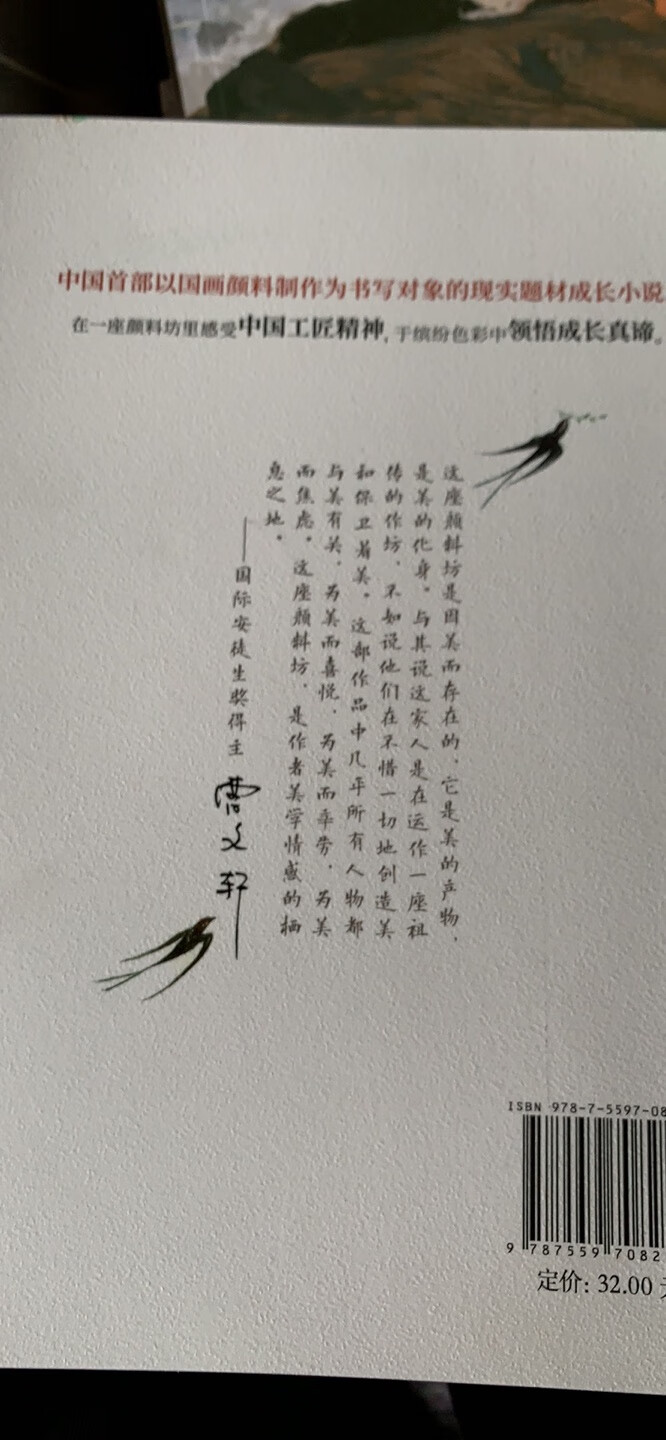 中国首部以国画颜料制作为书写对象的现实题材成长小说
在一座颜料坊里感受中国工匠精神,于缤纷色彩中领悟成长真谛。
这座颜料坊是因美而存在的、它是美的产物、
是美的化身。与其说这家人是在运作一座祖
传的作坊、不如说他们在不惜一切地创造美
和保卫着美。这部作品中几乎所有人物都
与美有关、为美而喜悦、为美而辛劳、为美
而焦虑。这座颜料坊、是作者美学情感的栖
息之地。
——国际安徒生奖得主 曹文轩
ISBN 978-7-5597-08
9 787559 7082
定价: 32.00 元